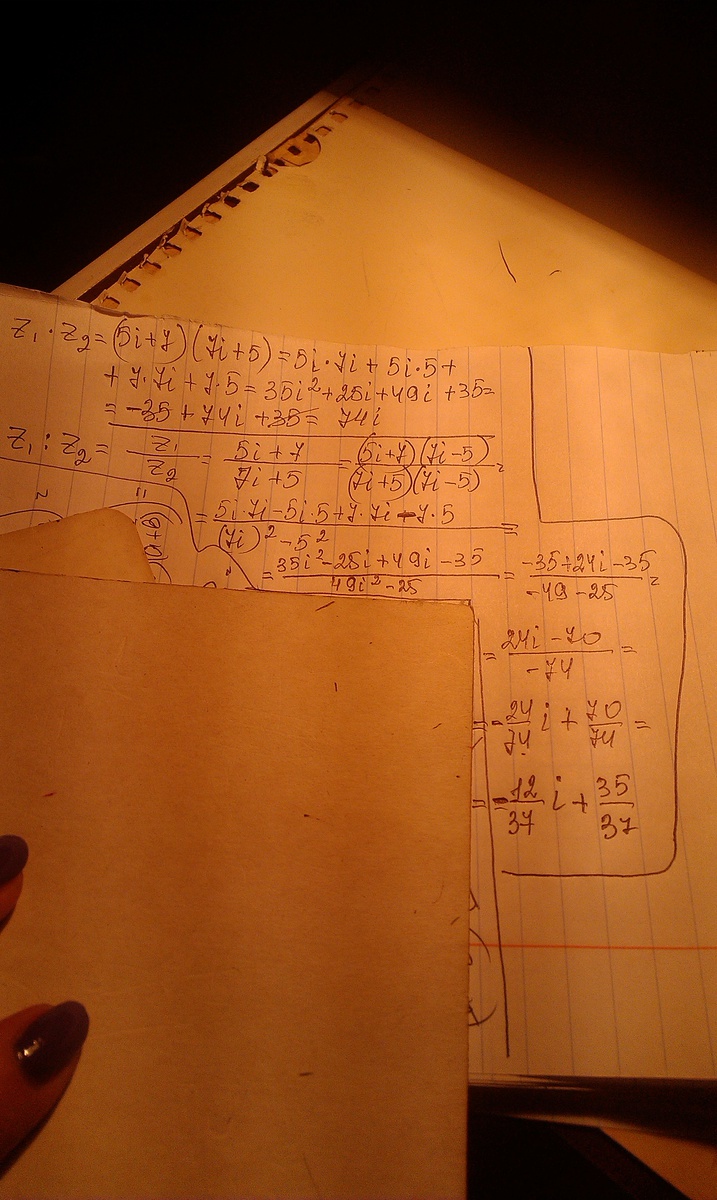 z₁ · z₂ = (5i+7)(7i+5) = 5i·7i + 5i·5 +
+ 7·7i + 7·5 = 35i² + 25i + 49i + 35 =
= -35 + 74i + 35 = 74i
z₁ : z₂ = z₁/z₂ = (5i+7)/(7i+5) = (5i+7)(7i-5)/(7i+5)(7i-5) =
= (5i·7i - 5i·5 + 7·7i - 7·5)/((7i)² - 5²) =
= (35i² - 25i + 49i - 35)/(49i² - 25) = (-35 + 24i - 35)/(-49 - 25) =
= (24i - 70)/(-74) =
= -24/74 i + 70/74 =
= -12/37 i + 35/37